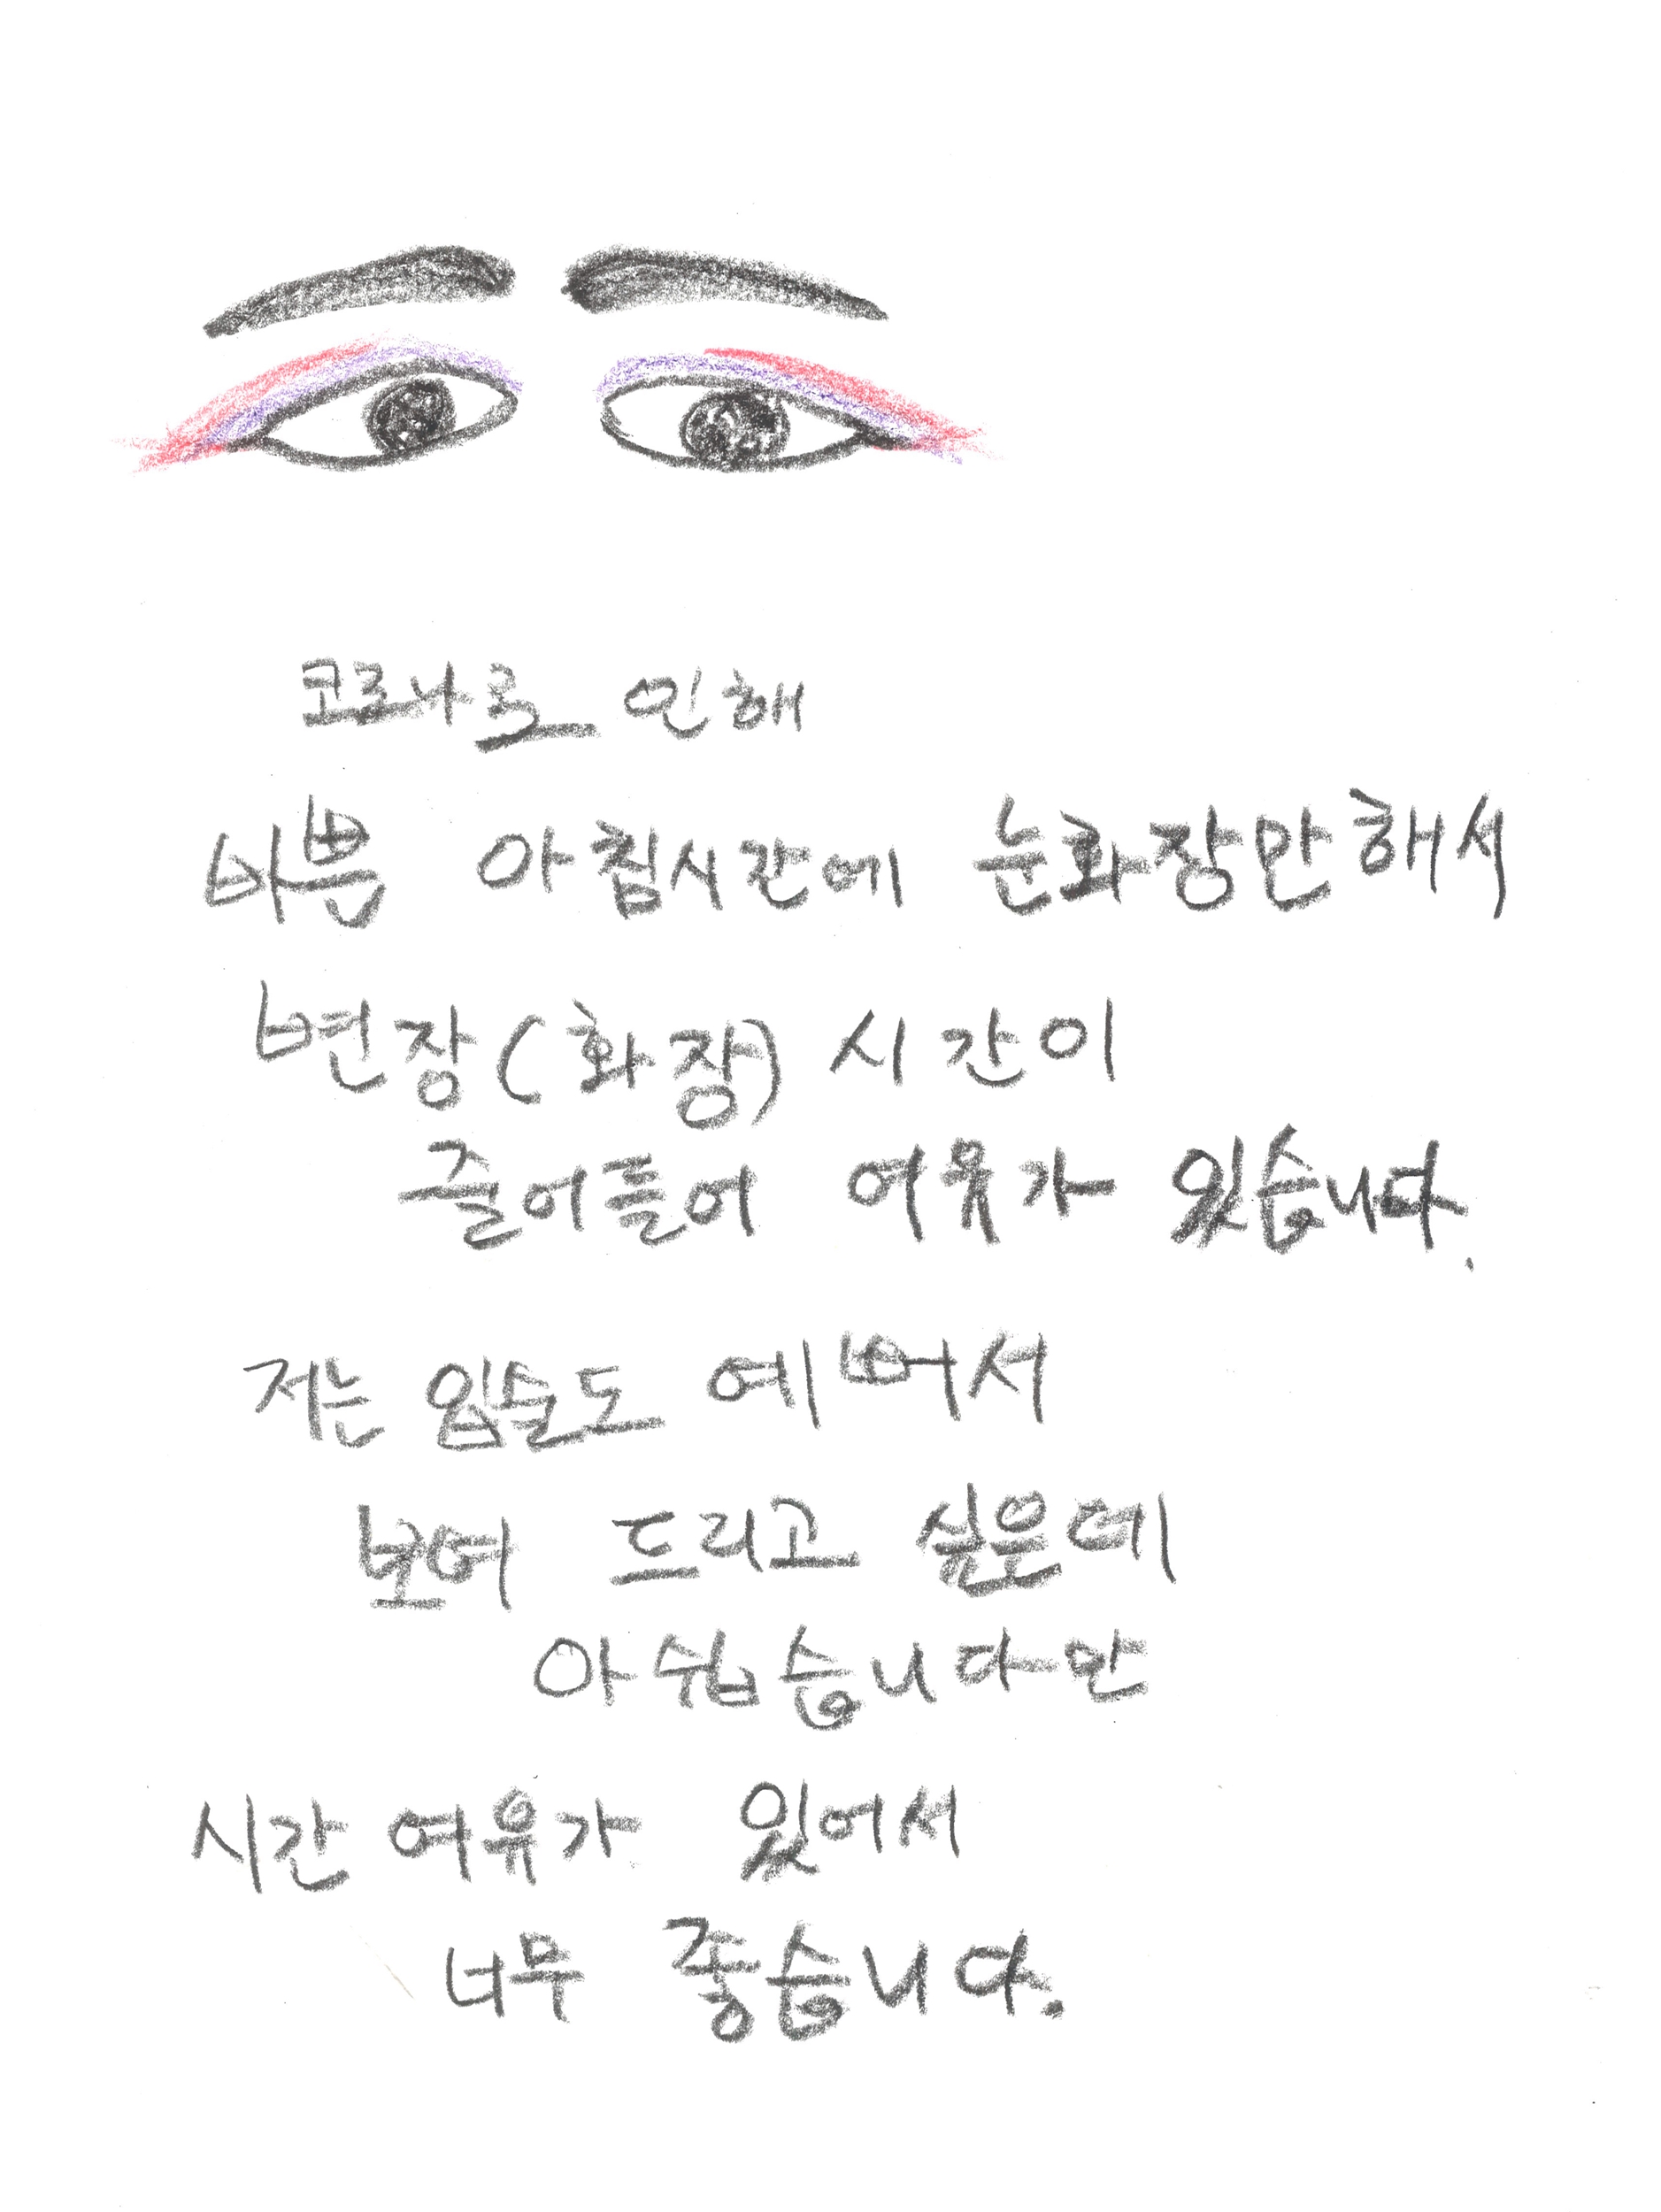 코로나로 인해
바쁜 아침시간에 눈화장만해서
변장(화장) 시간이
줄어들어 여유가 있습니다.
저는 입술도 예뻐서
보여 드리고 싶은데
아쉽습니다만
시간 여유가 있어서
너무 좋습니다.